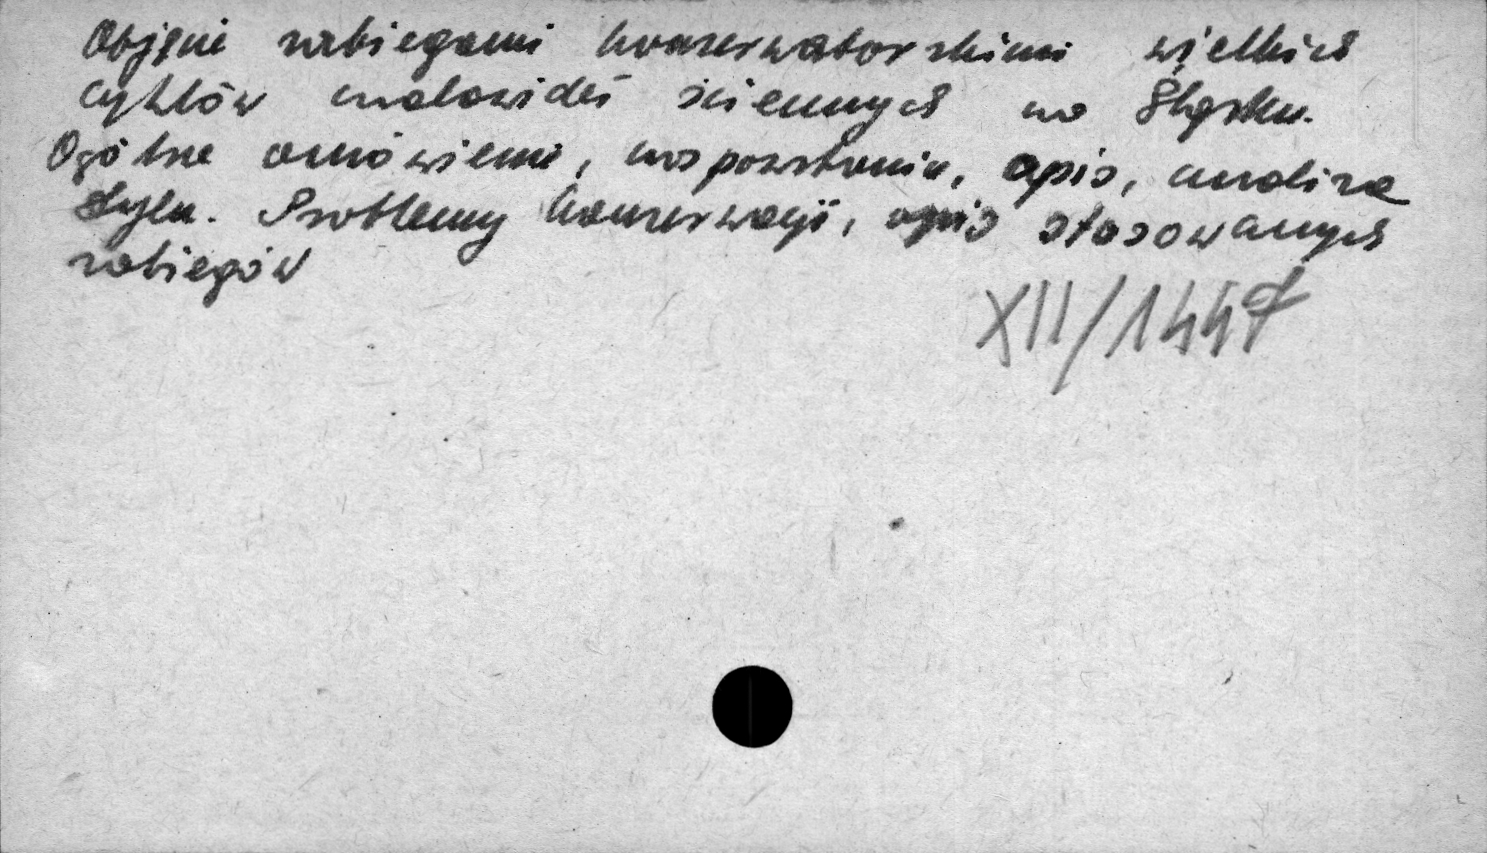 Objęcie zabiegami konserwatorskimi wielkich
cyklów malowideł ściennych na Śląsku.
Ogólne omówienie, czas powstania, opis, analiza
stylu. Problemy konserwacji, opis stosowanych
zabiegów
XII/1447